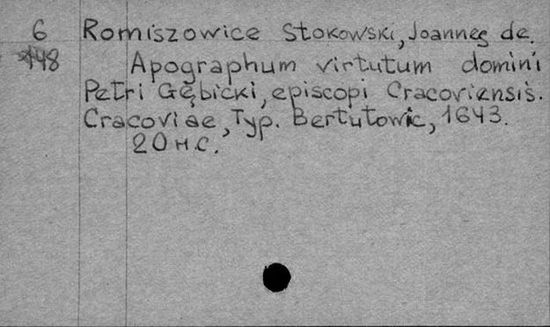 6 Romiszowice Stokowski, Joannes de.
448 Apographum virtutum domini
Petri Gębicki, episcopi Cracoviensis.
Cracoviae, Typ. Bertutowic, 1643.
20 н.с.